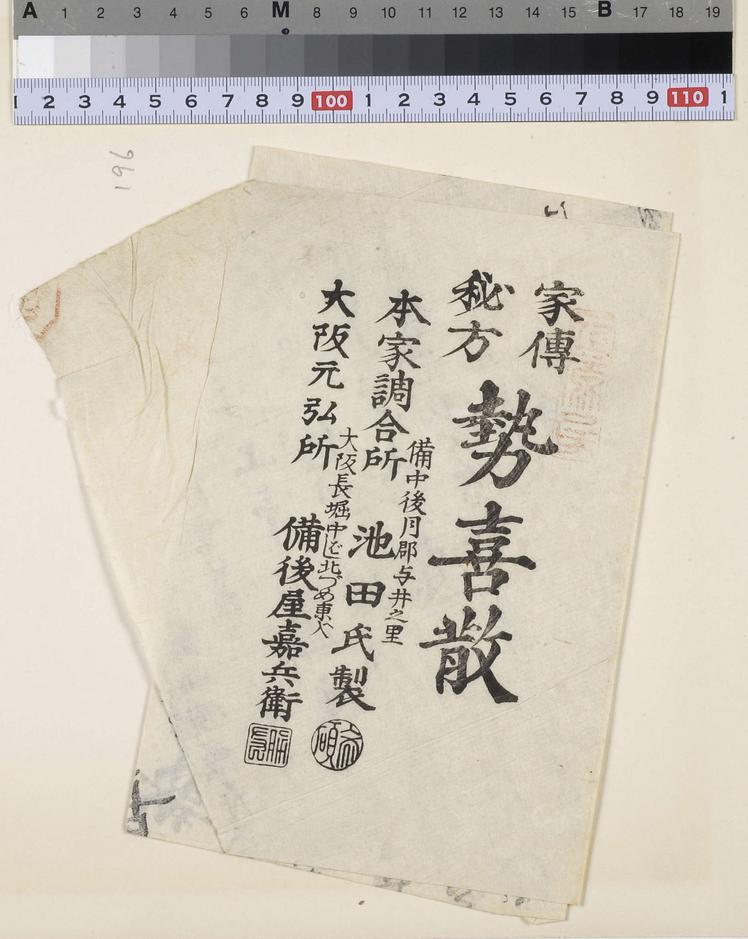 A 1 2 3 4 5 6 M 8 9 10 11 12 13 14 15 B 17 18 19
1 2 3 4 5 6 7 8 9 100 1 2 3 4 5 6 7 8 9 110 1
196
家傳
秘方
勢喜散
備中後月郡与井之里
本家調合所 池田氏製
大阪長堀中ばし北づめ東入
大阪元弘所 備後屋嘉兵衛